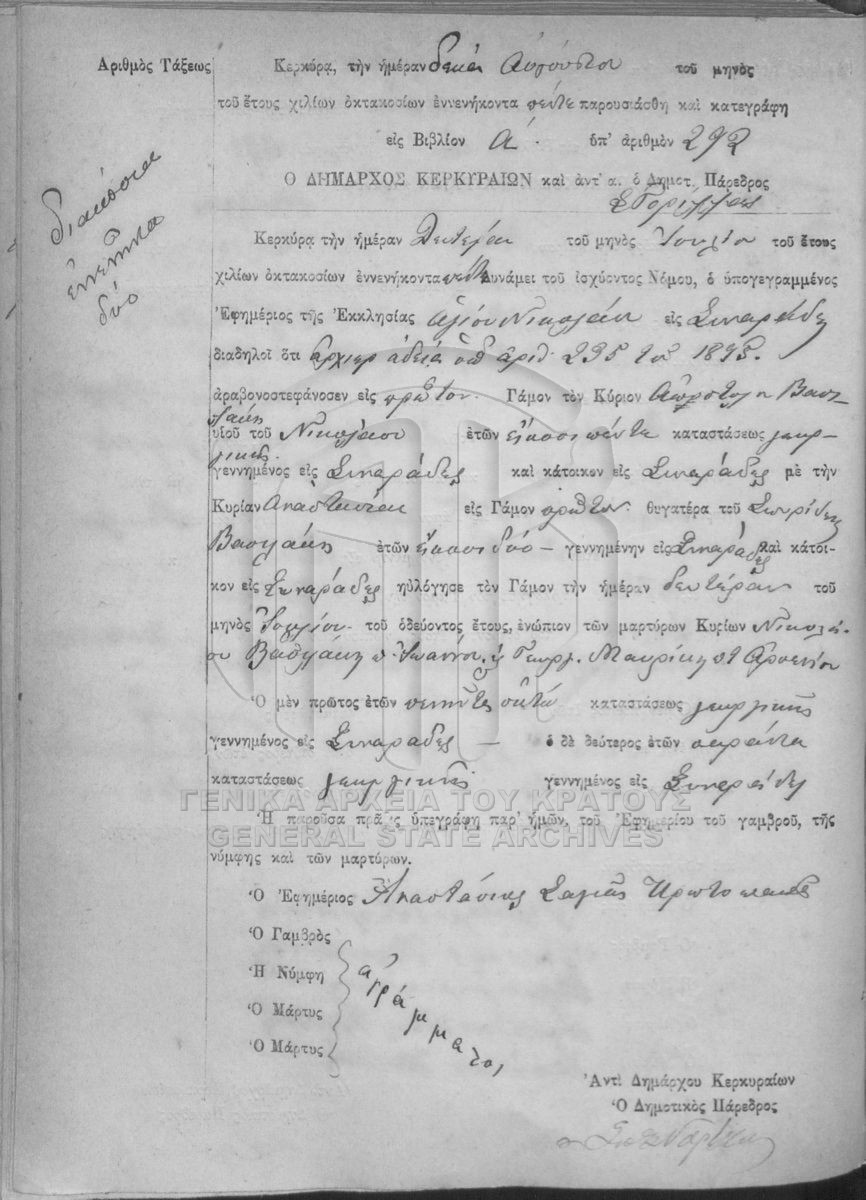 Ἀριθμὸς Τάξεως
διακόσια
ἐννενῆντα
δύο
Κερκύρᾳ, τὴν ἡμέραν δεκα Αὐγούστου τοῦ μηνὸς
τοῦ ἔτους χιλίων ὀκτακοσίων ἐννενήκοντα πέντε παρουσιάσθη καὶ κατεγράφη
εἰς Βιβλίον Α΄. ὑπ' ἀριθμὸν 292
Ο ΔΗΜΑΡΧΟΣ ΚΕΡΚΥΡΑΙΩΝ καὶ ἀντ' α. ὁ Δημοτ. Πάρεδρος
Κερκύρᾳ τὴν ἡμέραν Δευτέραν τοῦ μηνὸς Ἰουλίου τοῦ ἔτους
χιλίων ὀκτακοσίων ἐννενήκοντα πέντε δυνάμει τοῦ ἰσχύοντος Νόμου, ὁ ὑπογεγραμμένος
Ἐφημέριος τῆς Ἐκκλησίας Ἁγίου Νικολάου εἰς Σιναράδες
διαδηλοῖ ὅτι ἀρχιερ ἀδείᾳ ὑπ ἀριθ. 235 τοῦ 1895.
ἀραβονοστεφάνοσεν εἰς πρῶτον Γάμον τὸν Κύριον Ἀπόστολον Βασι-
λάκη
υἱοῦ τοῦ Νικολάου ἐτῶν εἴκοσι πέντε καταστάσεως γεωρ-
γικῆς
γεννημένος εἰς Σιναράδες καὶ κάτοικον εἰς Σιναράδες μὲ τὴν
Κυρίαν Αναστασίαν εἰς Γάμον πρῶτον θυγατέρα τοῦ Σπυρίδων
Βασιλάκη ἐτῶν εἴκοσι δύο - γεννημένην εἰς Σιναράδες καὶ κάτοι-
κον εἰς Σιναράδες ηὐλόγησε τὸν Γάμον τὴν ἡμέραν δευτέραν τοῦ
μηνὸς Ἰουλίου τοῦ ὁδεύοντος ἔτους, ἐνώπιον τῶν μαρτύρων Κυρίων Νικολά-
ου Βασιλάκη π. Ἰωάννου, ἡ Γεωργ. Μαζαρίκη π. Ἀρσενίου
Ὁ μὲν πρῶτος ἐτῶν πενῆντα ὀκτώ καταστάσεως γεωργικῆς
γεννημένος εἰς Σιναράδες — ὁ δὲ δεύτερος ἐτῶν σαράντα
καταστάσεως γεωργικῆς γεννημένος εἰς Σιναράδες
ΓΕΝΙΚΑ ΑΡΧΕΙΑ ΤΟΥ ΚΡΑΤΟΥΣ
GENERAL STATE ARCHIVES
Ἡ παροῦσα πρᾶξις ὑπεγράφη παρ' ἡμῶν, τοῦ Ἐφημερίου τοῦ γαμβροῦ, τῆς
νύμφης καὶ τῶν μαρτύρων.
Ὁ Ἐφημέριος Ἀναστάσιος Πρωτοπαπᾶς
Ὁ Γαμβρὸς
Ἡ Νύμφη
Ὁ Μάρτυς
Ὁ Μάρτυς
ἀγράμματοι
Ἀντὶ Δημάρχου Κερκυραίων
Ὁ Δημοτικὸς Πάρεδρος